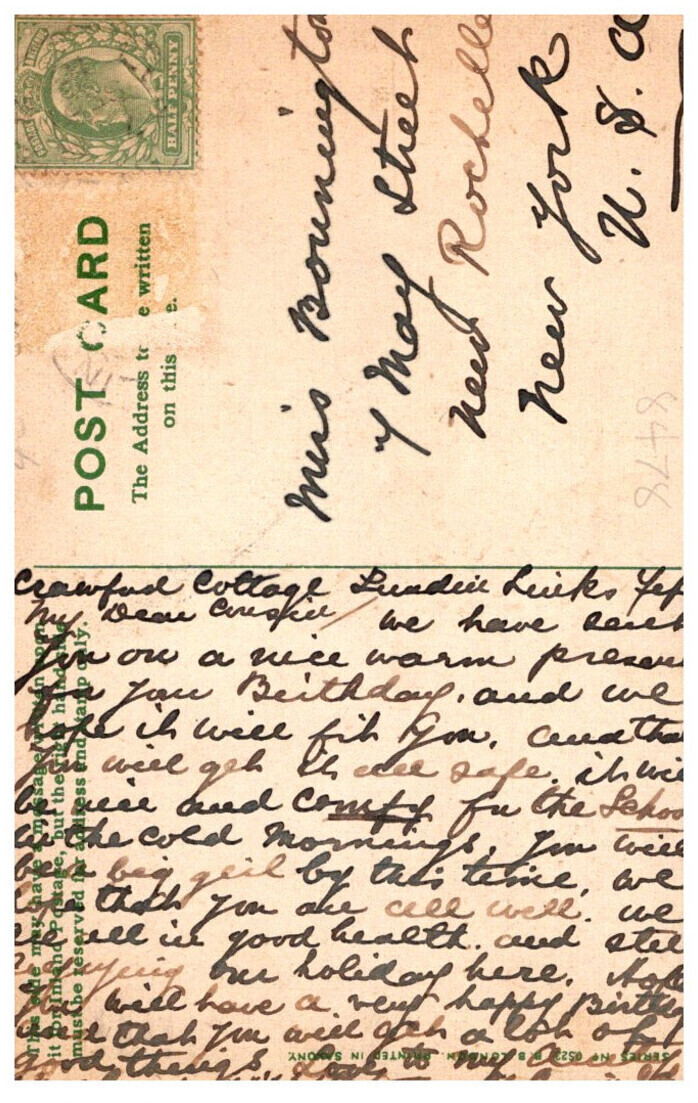 HALF PENNY
POST CARD
The Address to be written
on this
Miss Bonnington
7 May Street
New Rochelle
New York
U. S. A
8478
Crawford Cottage Lundin Links
My Dear Cousin we have sent
you on a nice warm presen
for your Birthday. and we
hope it will fit you. and tha
you will get it all safe. it wi
be nice and comfy for the Schoo
in the cold mornings. You will
be a big girl by this time, we
hope that you are all well. we
are all in good health. and still
enjoying our holiday here. Hope
you will have a very happy Birth
and that you will get a lot of
good things. Love to my
This side may have a message written upon
it for Inland Postage, but the right hand
must be reserved for address and stamp only.
SERIES No 0522 B. B. LONDON. PRINTED IN SAXONY.